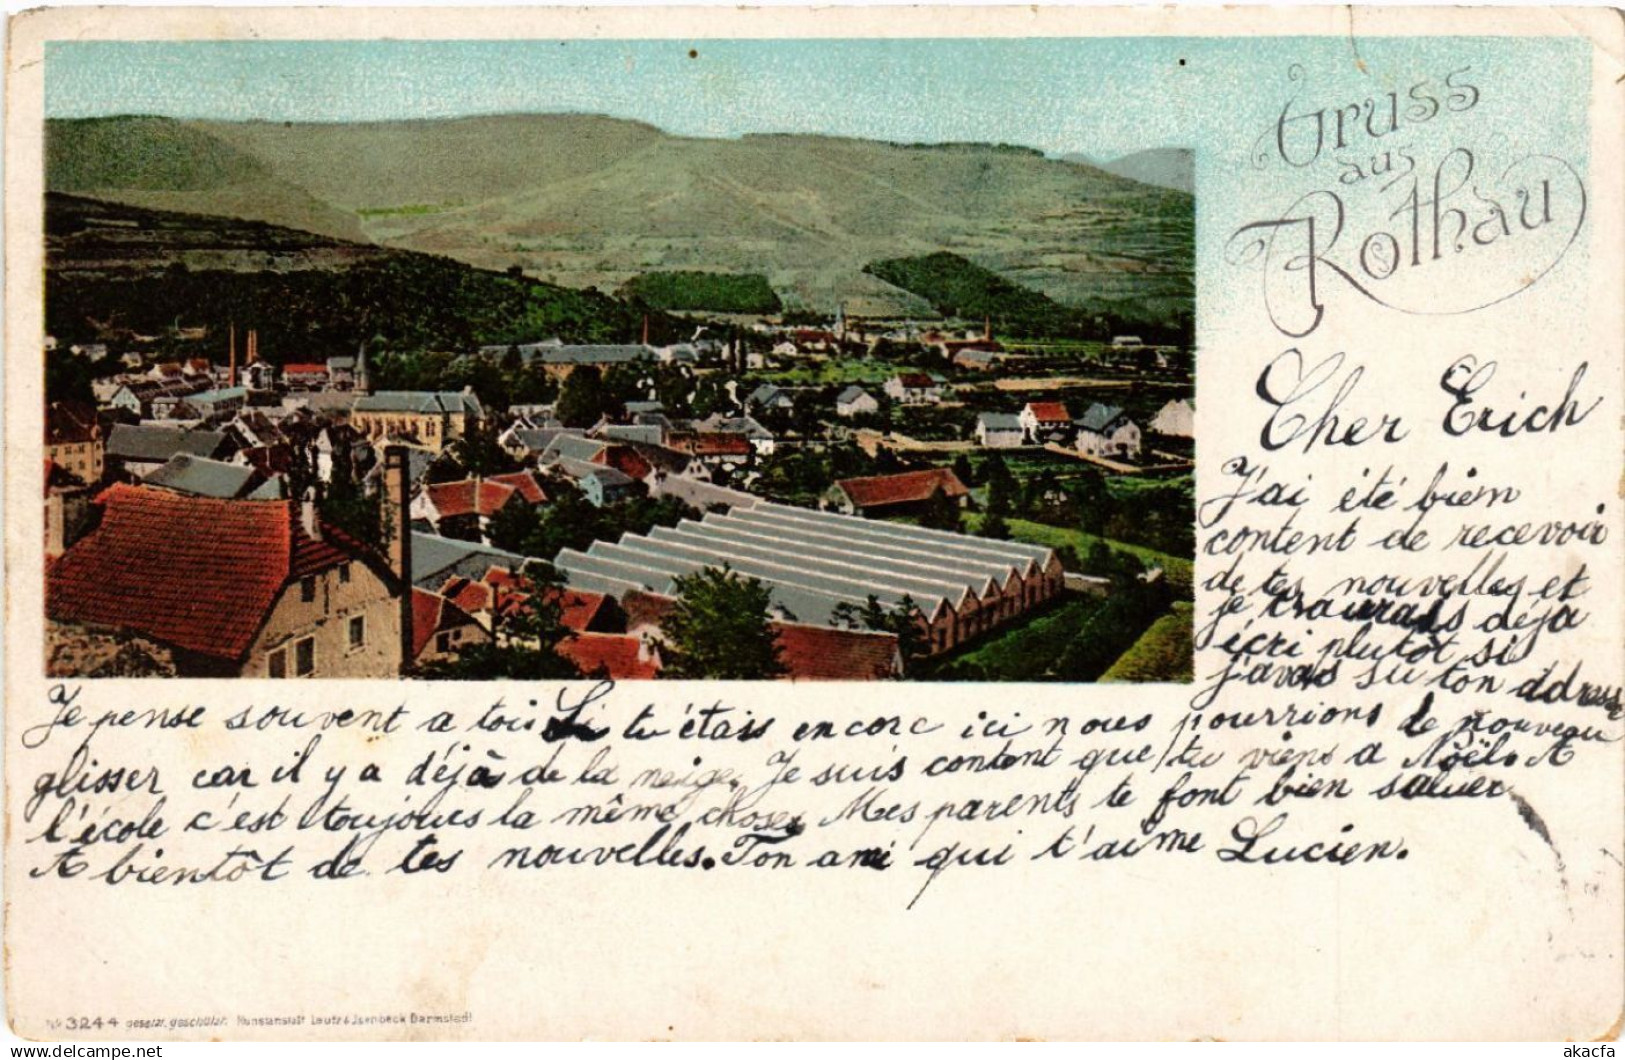 Gruss
aus
Rothau
Cher Erich
J'ai été bien
content de recevoir
de tes nouvelles et
je t'aurais déjà
écri plutôt si
j'avais su ton address
Je pense souvent a toi Si tu étais encore ici nous pourrions de nouveau
glisser car il y a déjà de la neige. Je suis content que tu viens a Noël. A
l'école c'est toujours la même chose. Mes parents te font bien saluer
A bientôt de tes nouvelles. Ton ami qui t'aime Lucien.
No 3244 gesetzl. geschützt. Kunstanstalt Lautz & Jsenbeck Darmstadt
delcampe.net
akacfa